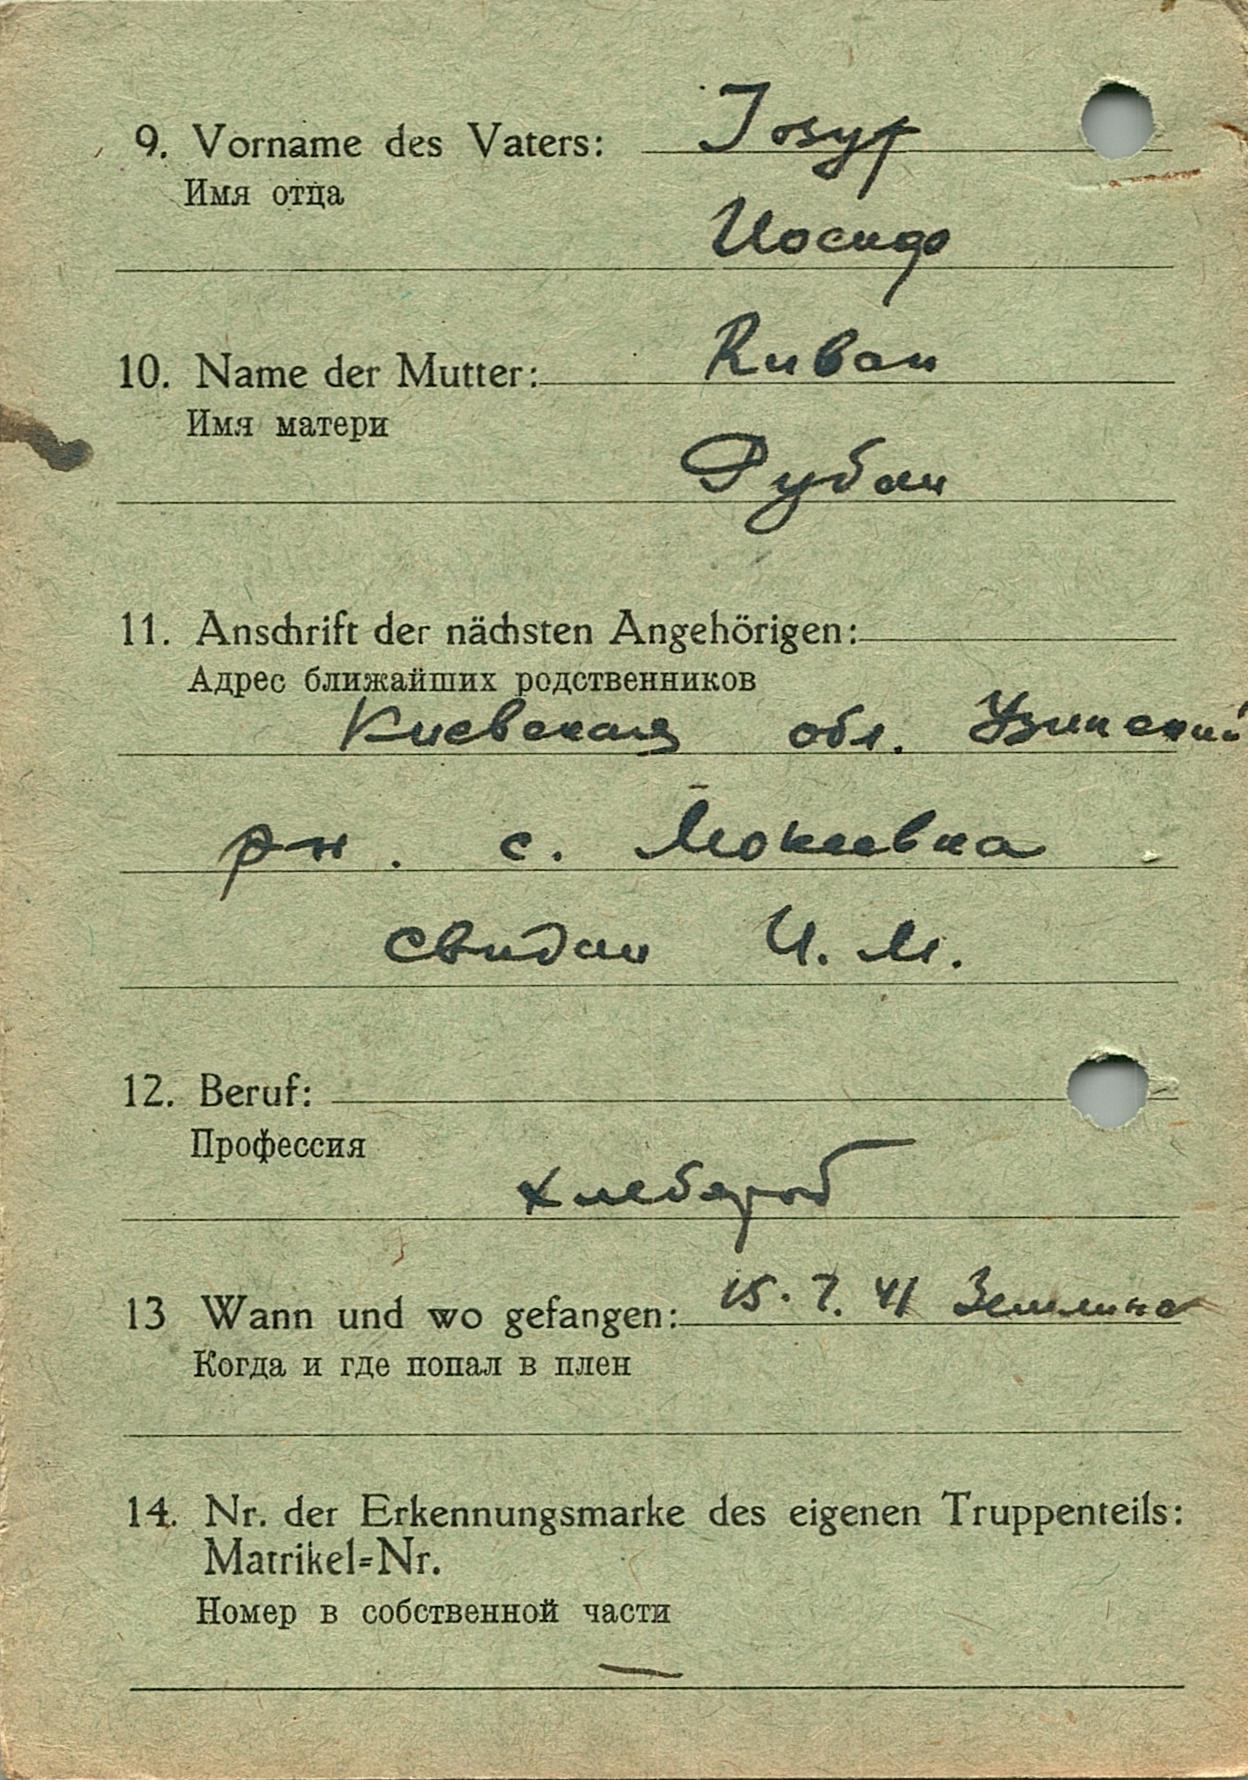 9. Vorname des Vaters: Iosyf
Имя отца
Иосиф
10. Name der Mutter: Ruban
Имя матери
Рубан
11. Anschrift der nächsten Angehörigen:
Адрес ближайших родственников
Киевская обл. Узинский
рн. с. Мокиевка
Свидан И. М.
12. Beruf:
Профессия
хлебороб
13 Wann und wo gefangen: 15. 7. 41
Когда и где попал в плен
14. Nr. der Erkennungsmarke des eigenen Truppenteils:
Matrikel=Nr.
Номер в собственной части
—